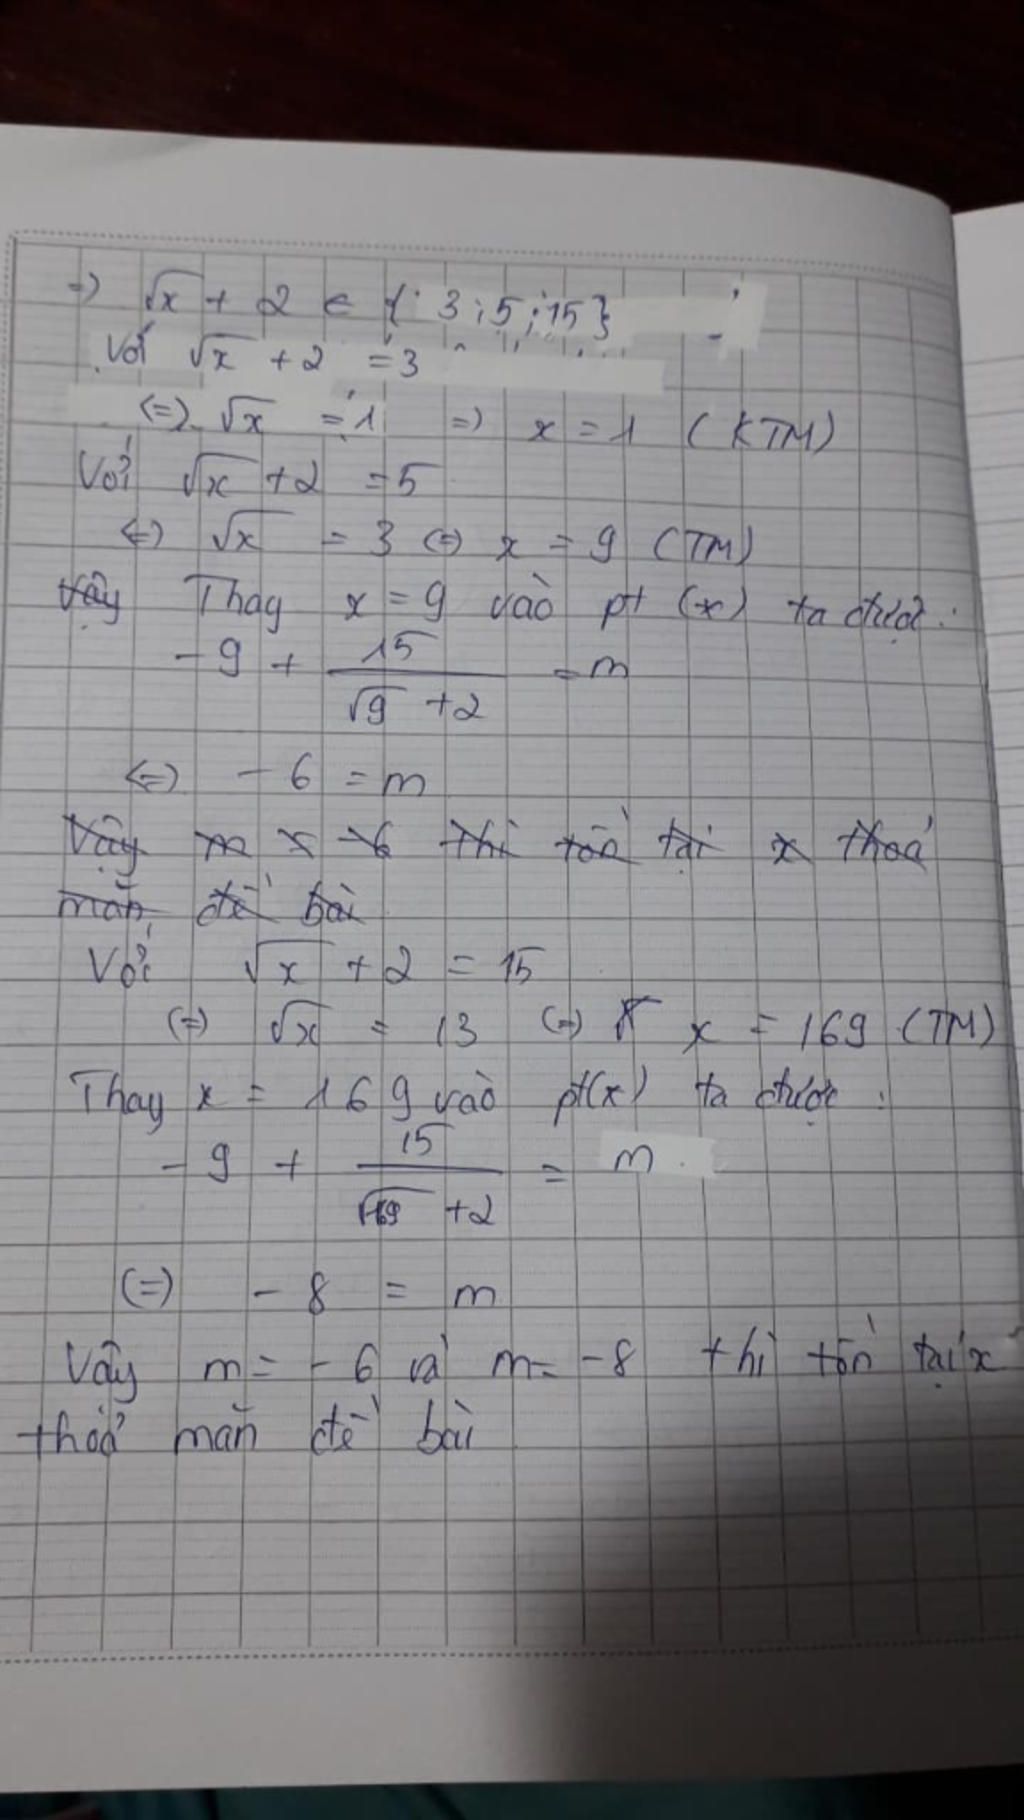 =) √x + 2 ∈ { 3 ; 5 ; 15}
Với √x + 2 = 3
(=) √x = 1 =) x = 1 (KTM)
Với √x + 2 = 5
(=) √x = 3 (=) x = 9 (TM)
Vậy Thay x = 9 vào pt (x) ta được :
- 9 + 15 / (√9 + 2) = m
(=) - 6 = m
Vậy m = -6 thì tồn tại x thoả
mãn đề bài
Với √x + 2 = 15
(=) √x = 13 (=) x = 169 (TM)
Thay x = 169 vào pt(x) ta được :
- 9 + 15 / (√169 + 2) = m
(=) - 8 = m
Vậy m = - 6 và m = - 8 thì tồn tại x
thoả mãn đề bài